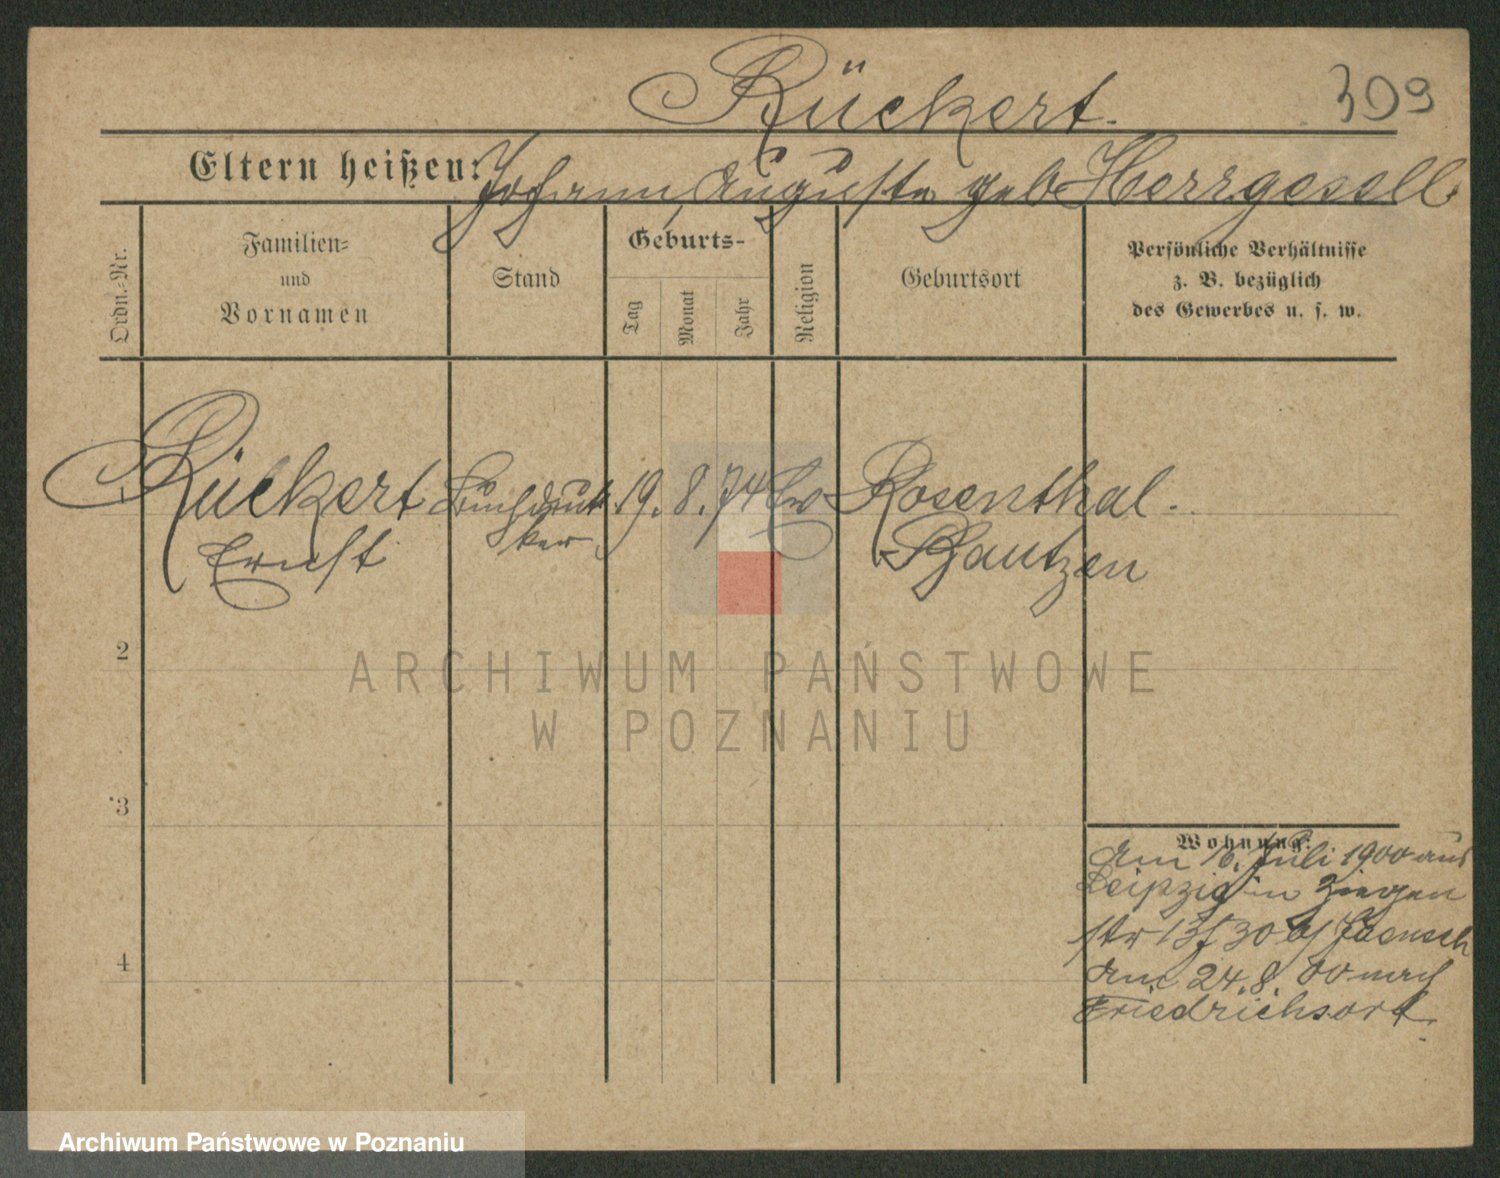 Rückert.
309
Eltern heißen: Johann, Auguste geb Herrgesell.
Ordn.-Nr.
Familien-
und
Vornamen
Stand
Geburts-
Tag
Monat
Jahr
Religion
Geburtsort
Persönliche Verhältnisse
z. B. bezüglich
des Gewerbes u. s. w.
1
Rückert Buchdruk 19. 8. 74 Ev Rosenthal.
Ernst ker Bautzen
2
ARCHIWUM PAŃSTWOWE
W POZNANIU
3
Wohnung:
Am 16. Juli 1900 aus
Leipzig in Ziegen
str 13 30 bj Jaensch
Am 24. 8. 00 nach
Friedrichsort.
4
Archiwum Państwowe w Poznaniu